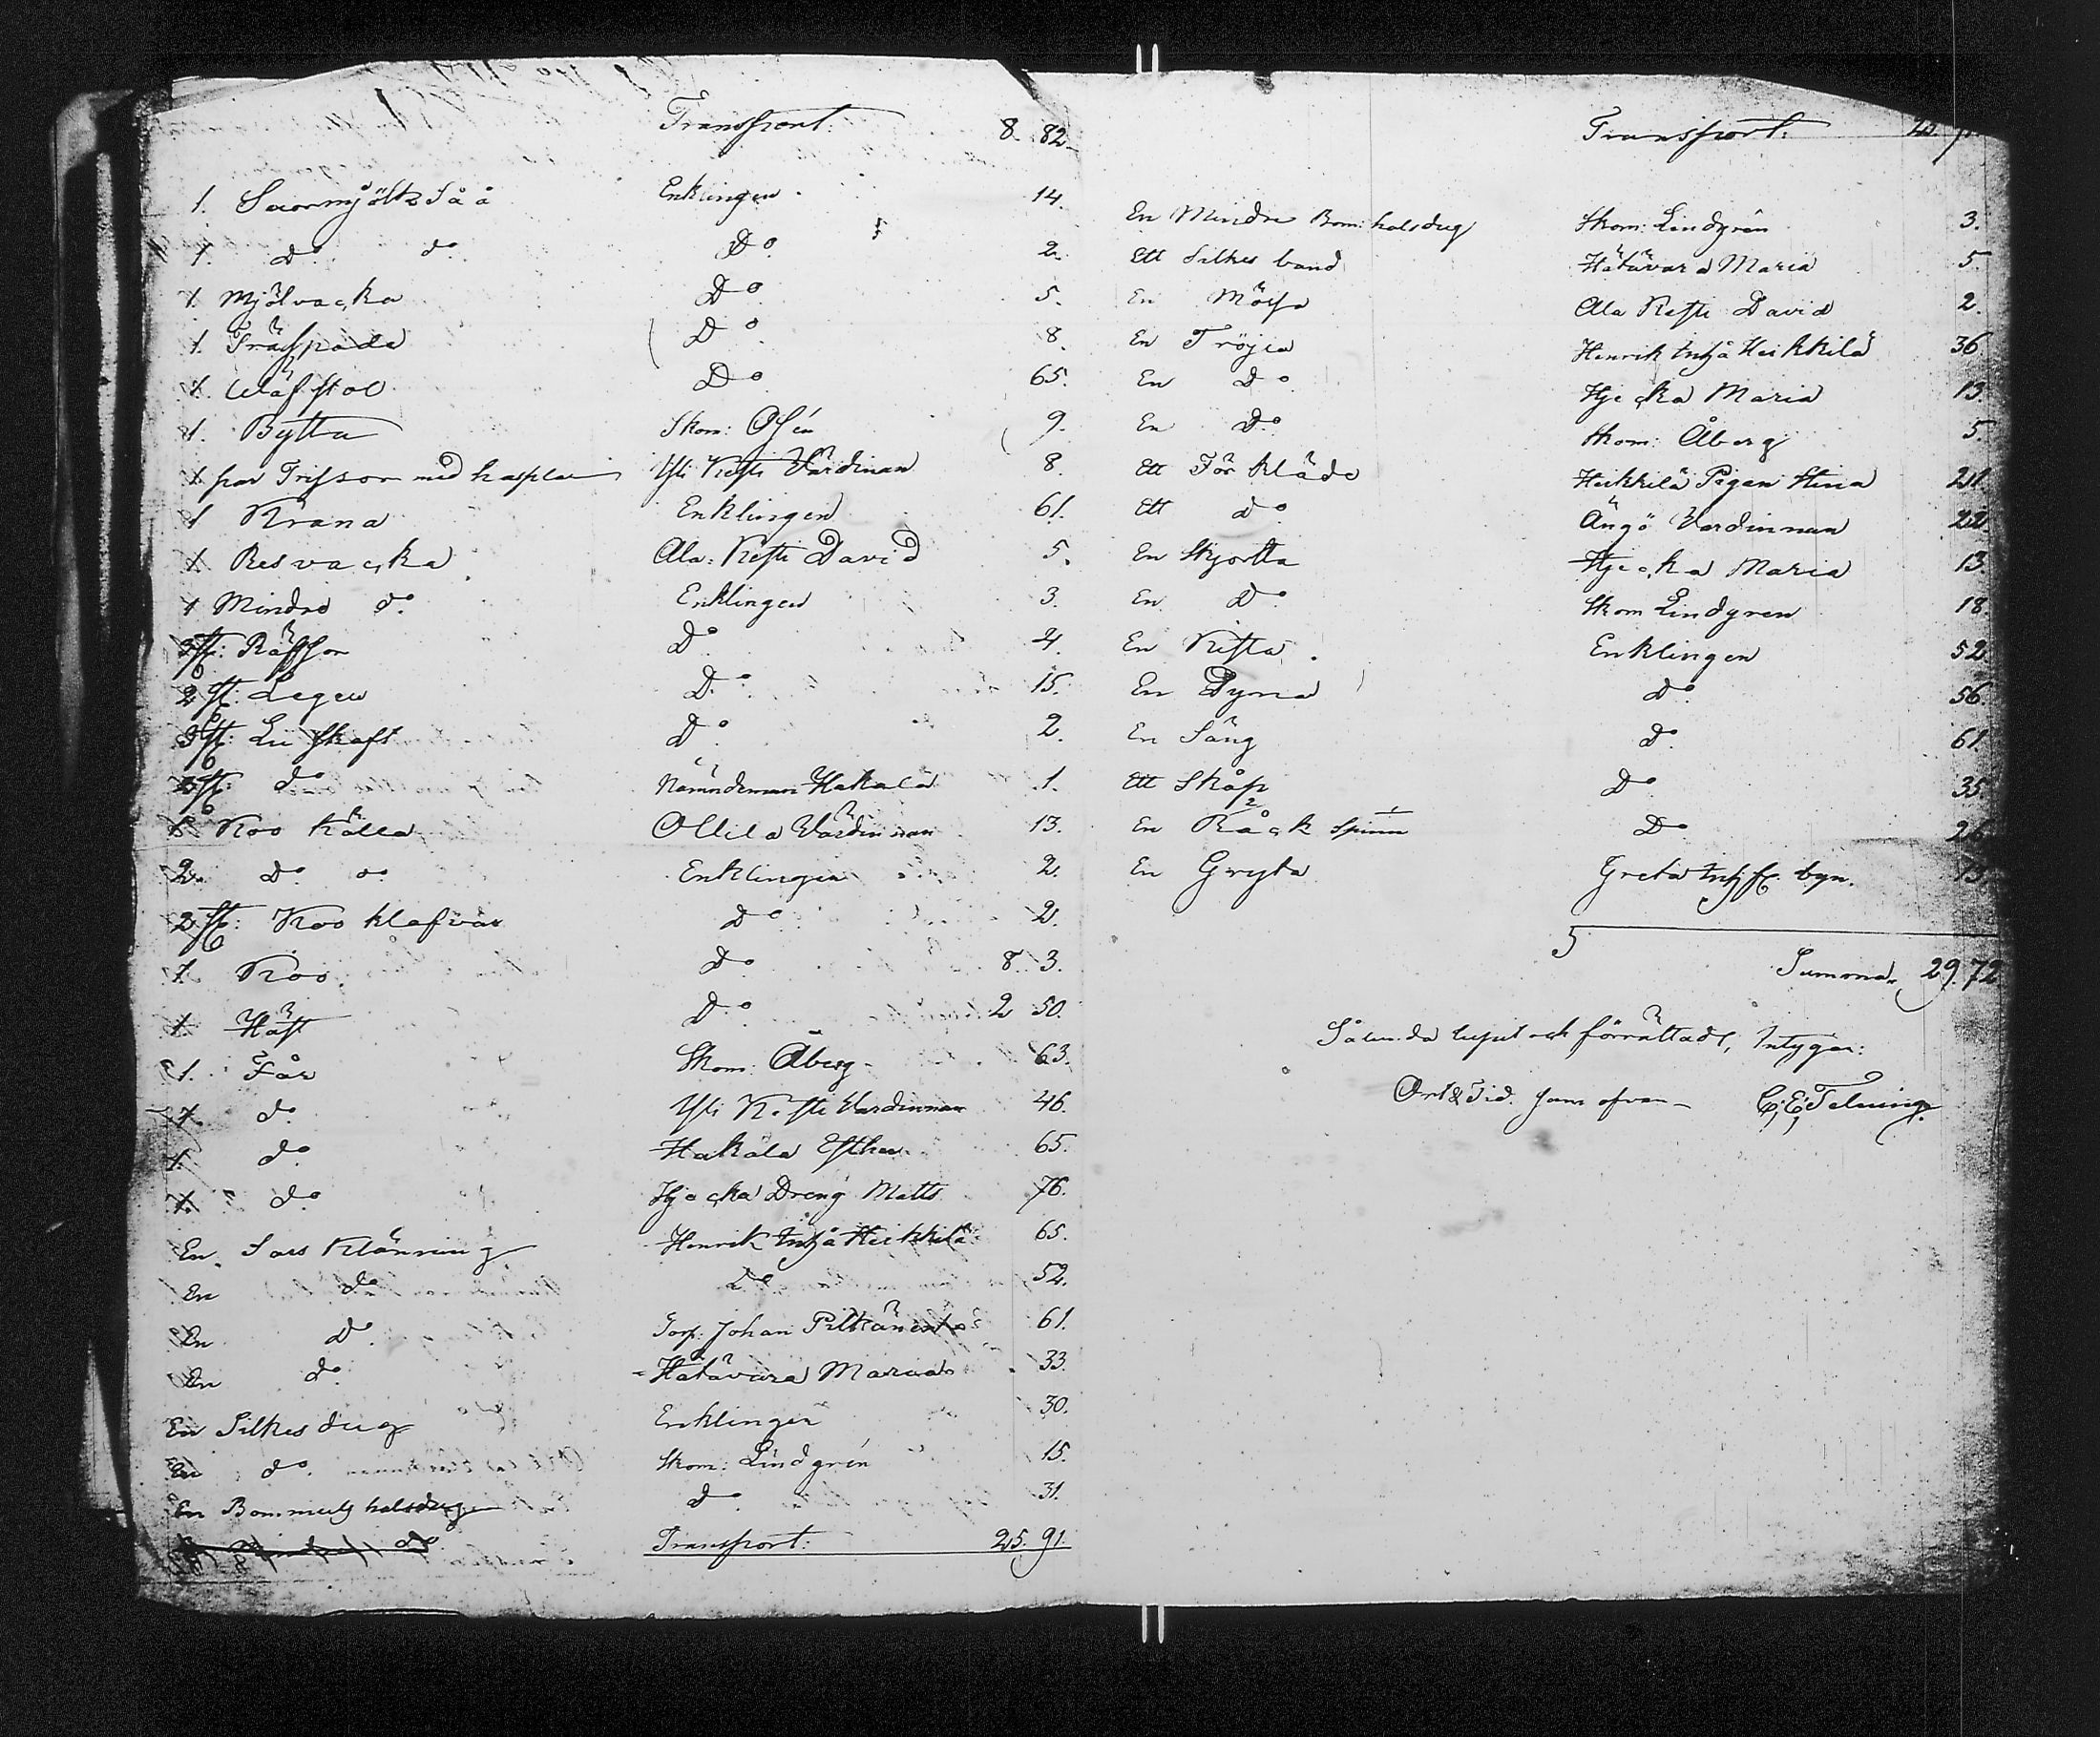 Transport. 8. 82
1. Suormjölts Såå Enklingen 14.
1. do do Do 2.
1. Mjölvacka Do 5.
1. Träspade Do 8.
1. Wäfstol Do 65.
1. Bytta Skom: Olsén 9.
1 par Trissor med hasplar Yli Kesti Värdinan 8.
1 Krana Enklingen 61.
1. Resvacka Ala: Kesti David 5.
1 Mindre do Enklingen 3.
3 st: Räfsor Do 4.
2 st: Legeu Do 15.
3 st: Lii Skaft Do 2.
3 st: do Nämndeman Hakala 1.
1 Koo källa Ollila Värdinnan 13.
2. Do o Enklingen 2.
2 st: Koo klafvar Do 2.
1. Koo. Do 8. 3.
1. Häst Do 2 50.
1. Får Skom: Åberg 63.
1. do Yli Kesti Vardinnan 46.
1. do Hakala Esther 65.
1. do Hjecka Dreng Matts 76.
En Sars Klänning Henrik Inhå Heikkilä 65.
En do Do 52.
En Do Torp. Johan Pitkänen 61.
En do Hätävara Maria 33.
En Silkes dug Enklingen 30.
En do Skom: Lindgrén 15.
En Bommuls halsdug do 31.
Transport: 25. 91.
Transport.
En Mindre Bom: halsdug Skom: Lindgrén 3.
Ett Silkes band Hätävara Maria 5.
En Mössa Ala Kesti David 2.
En Tröja Henrik Inhå Heikkilä 36
En Do Hjecka Maria 13.
En Do Skom: Åberg 5.
Ett Förkläde Heikkilä Pigan Stina 21
Ett do Ängö Vardinnan 22
En Skjorta Hjecka Maria 13.
En Do Skom Lindgren 18.
En Kista. Enklingen 52
En Dyna Do 56.
En Säng Do 61.
Ett Skåp Do 35.
En Råck Spinn Do 26
En Gryta Greta Inh fr. byn. 13.
Summa, 29. 72
Sålunda lupit och förrättadt, Intygar:
Ort & Tid. som ofvan – C; E; Telning.